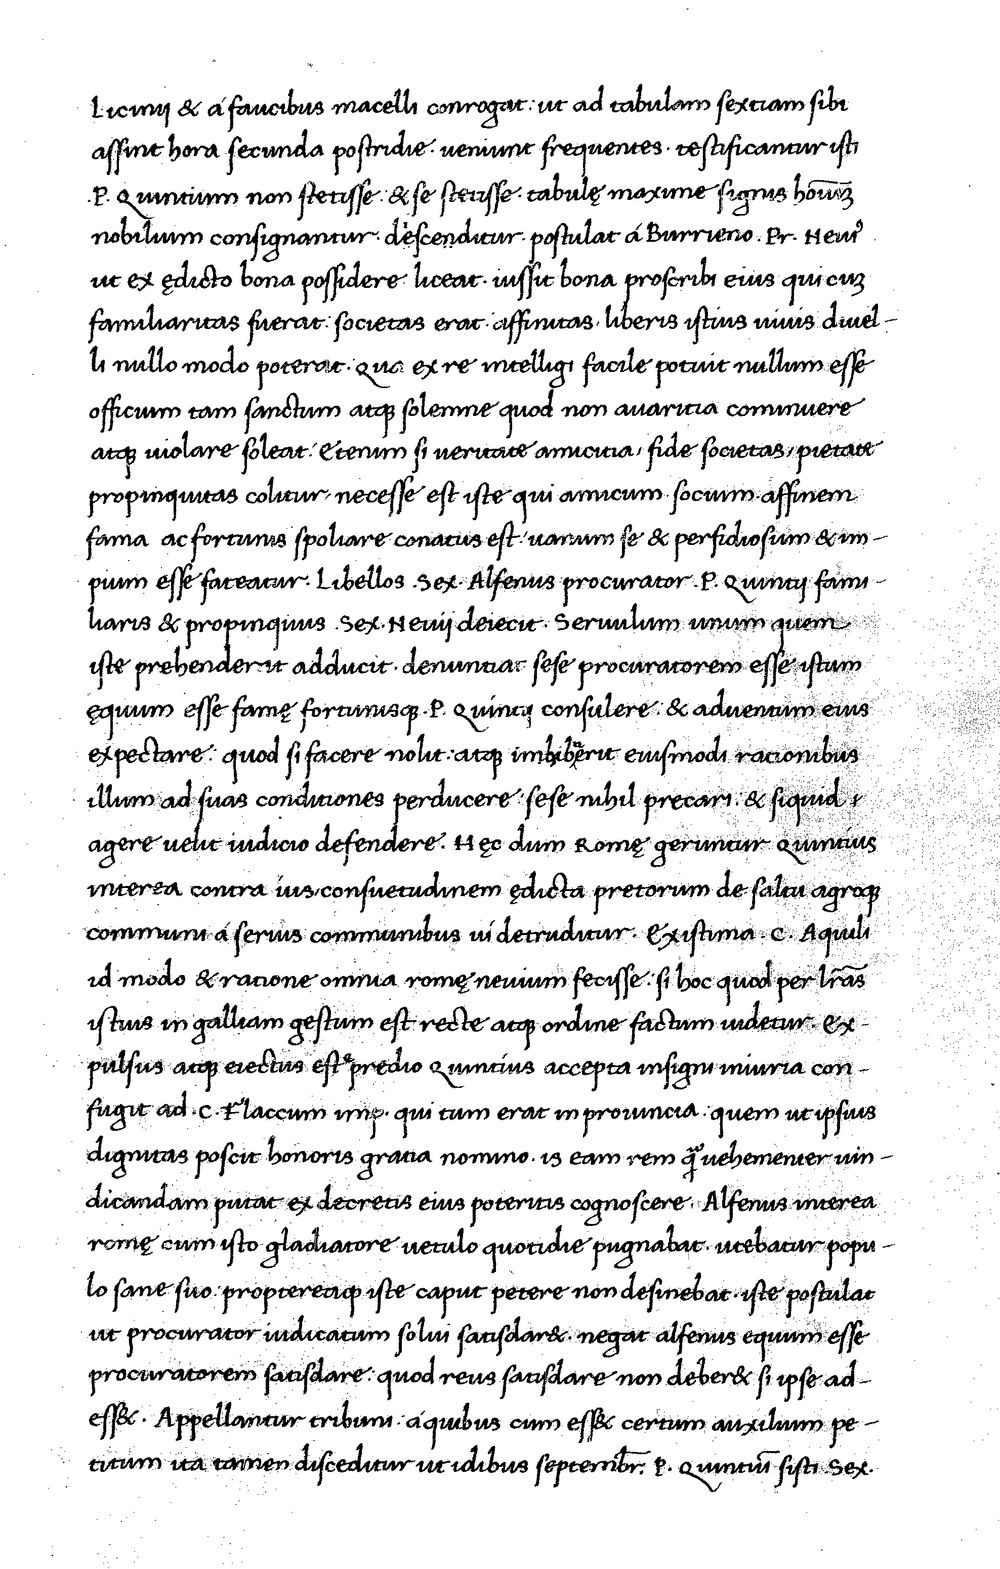 Licinij & á faucibus macelli conrogat: ut ad tabulam sextiam sibi
assint hora secunda postridie. ueniunt frequentes. testificantur isti
.P. Quintium non stetisse. & se stetisse. tabulę maxime signis hoīuꝫ
nobilium consignantur. descenditur. postulat á Burrieno. Pr. Neuiꝰ
ut ex ędicto bona possidere liceat. iussit bona proscribi eius qui cuꝫ
familiaritas fuerat: societas erat. affinitas, liberis istius uiuis diuel-
li nullo modo poterat. Qua ex re intelligi facile potuit nullum esse
officium tam sanctum atqꝫ solemne quod non auaritia comminuere
atqꝫ uiolare soleat. Etenim si ueritate amicitia, fide societas, pietate
propinquitas colitur, necesse est iste qui amicum. socium. affinem
fama ac fortunis spoliare conatus est. uanum se & perfidiosum & im-
pium esse fateatur. Libellos .Sex. Alfenus procurator .P. Quintij fami-
liaris & propinquus .Sex. Neuij deiecit. Seruulum unum quem
iste prehenderat adducit. denuntiat sese procuratorem esse. istum
ęquum esse famę fortunisqꝫ .P. Quintij consulere. & aduentum eius
expectare: quod si facere nolit: atqꝫ imbiberit eiusmodi rationibus
illum ad suas conditiones perducere. sese nihil precari. & siquid
agere uelit iudicio defendere. Hęc dum Romę geruntur Quintius
interea contra ius, consuetudinem ędicta pretorum de saltu agroqꝫ
communi á seruis communibus ui detruditur. Existima .C. Aquili
id modo & ratione omnia romę neuium fecisse. si hoc quod per lr̄as
istius in galliam gestum est recte atqꝫ ordine factum uidetur. Ex-
pulsus atqꝫ eiectus est ᵉ predio Quintius accepta insigni iniuria con-
fugit ad .C. Flaccum imp. qui tum erat in prouincia. quem ut ipsius
dignitas poscit honoris gratia nomino. is eam rem ꝙ̃ uehementer uin-
dicandam putat ex decretis eius poteritis cognoscere. Alfenus interea
romę cum isto gladiatore uetulo quotidie pugnabat. utebatur popu-
lo sane suo. proptereaqꝫ iste caput petere non desinebat. iste postulat
ut procurator iudicatum solui satisdar&. negat alfenus equum esse
procuratorem satisdare: quod reus satisdare non deber& si ipse ad-
ess&. Appellantur tribuni. á quibus cum ess& certum auxilium pe-
titum ita tamen disceditur ut idibus septembr̄. P. Quintiū sisti .Sex.